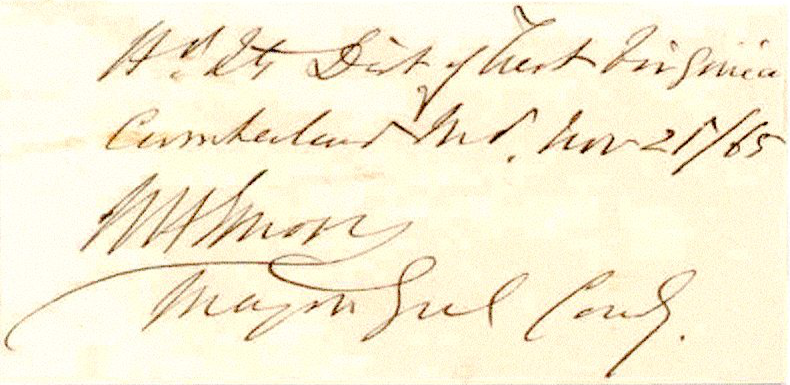 Hd. Qts Dist of West Virginia
Cumberland Md. Nov 21/65
WHEmory
Major Genl Comdg.